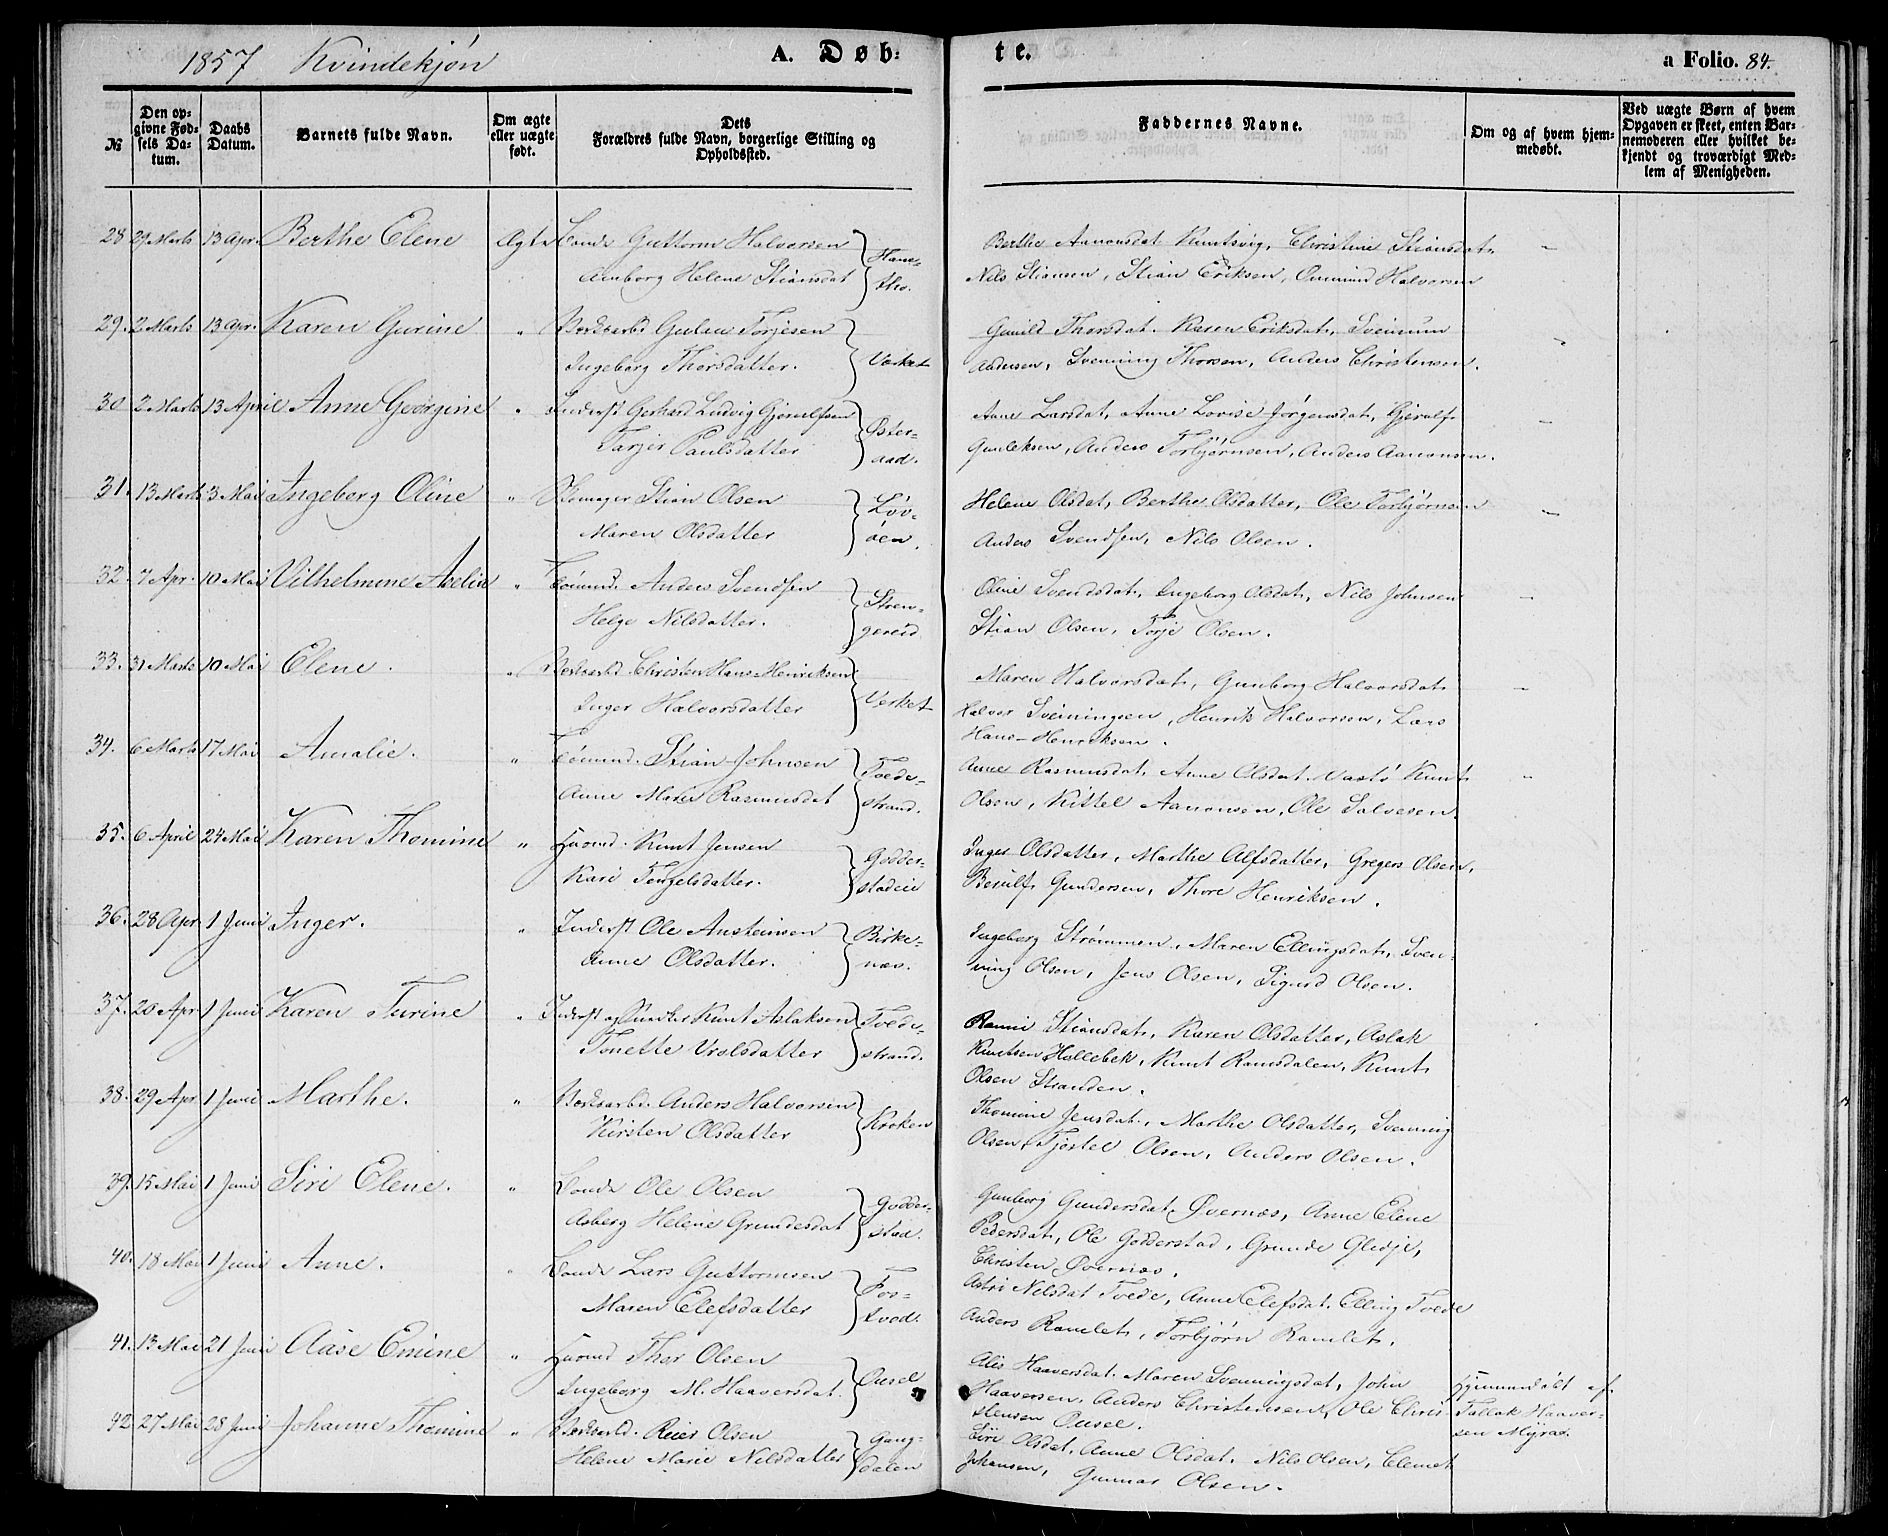 1857 Kvindekjøn A. Døb: te. a Folio. 84.
№
Den op-
givne Fød-
sels Da-
tum.
Daabs
Datum.
Barnets fulde Navn.
Om ægte
eller uægte
født.
Dets
Forældres fulde Navn, borgerlige Stilling og
Opholdssted.
Faddernes Navne.
Om og af hvem hjem-
medøbt.
Ved uægte Børn af hvem
Opgaven er skeet, enten Bar-
nemoderen eller hvilket be-
kjendt og troværdigt Med-
lem af Menigheden.
28 29 Marts 13 Apr. Berthe Elene Ægte Bonde Guttorm Halvorsen Hane-
Amborg Helene Stiansdat tho.
Berthe Aanonsdat Knutsvig, Christine Stiansdat,
Nils Stiansen, Stian Eriksen, Omund Halvorsen
29. 2 Marts 13 Apr. Karen Gurine " Værksarbd Gulau Torjesen
Ingeborg Thorsdatter. Værket
Gunild Thorsdat. Karen Eriksdat, Sveinum
Andersen, Svenning Thorsen, Anders Christensen.
30 2 Marts 13 April Anne Georgine " Inderst Gerhard Ludvig Gjerulfsen Øster-
Tarjer Paulsdatter aad.
Anne Larsdat, Anne Lovise Jörgensdat, Gjerulf
Gunleksen, Anders Torbjörnsen, Anders Aanonsen.
31. 13 Marts 3 Mai Ingeborg Oline " Skomager Stian Olsen Löv-
Maren Olsdatter öen.
Helene Olsdat, Berthe Olsdatter, Ole Torbjørnsen
Anders Svendsen, Nils Olsen.
32. 7 Apr. 10 Mai Vilhelmine Axeline " Tömmd. Anders Svendsen Stren-
Helge Nilsdatter. gereid
Oline Svendsdat, Ingeborg Olsdat, Nils Johnsen
Stian Olsen, Torje Olsen.
33. 31 Marts 10 Mai Elene. " Værksarbd. Christen Hans-Henriksen
Inger Halvorsdatter Verket
Maren Halvorsdat, Gunborg Halvorsdat
Halvor Sveiningsen, Henrik Halvorsen, Lars
Hans-Henriksen.
34. 6 Marts 17 Mai Amalie. " Tömmd. Stian Johnsen Tvede-
Anne Maria Rasmusdat strand.
Anne Rasmusdat, Anne Olsdat Nastö Knut
Olsen, Kittel Aanonsen, Ole Salvesen.
35. 6 April 24 Mai Karen Thomine " Huusmd. Knut Jensen Godder-
Kari Tengelsdatter. stadeie
Inger Olsdatter, Marthe Alfsdatter, Gregers Olsen,
Berulf Gundersen, Thore Henriksen.
36. 28 Apr. 1 Juni Inger. " Inderst Ole Austeinsen Birke-
Anne Olsdatter. næs.
Ingeborg Strömmen, Maren Ellingsdat, Sven-
ning Olsen, Jens Olsen, Sigurd Olsen.
37. 20 Apr 1 Juni Karen Turine " Inderst og Knut Aslaksen Tvede-
Tonette Vrolsdatter strand.
Stiansdat, Karen Olsdatter, Aslak
Knutsen Hallebek, Knut Ramsdalen, Knut
Olsen Stranden.
38. 29 Apr 1 Juni Marthe. " Værksarbd. Anders Halvorsen
Kirsten Olsdatter Kroken
Thomine Jensdat., Marthe Olsdatter, Svenning
Olsen, Tjostel Olsen, Anders Olsen.
39. 15 Mai 1 Juni Siri Elene. " Bonde Ole Olsen Godder-
Asberg Helene Grundesdat stad.
Gunborg Gundersdat Øvernæs, Anne Elene
Pedersdat, Ole Godderstad, Grunde Gledje,
Christen Øvernæs.
40. 18 Mai 1 Juni Anne. " Bonde Lars Guttormsen Fos-
Maren Elefsdatter tvod.
Astri Nilsdat Tvede, Anne Elefsdat. Elling Tvede
Anders Ramlet, Torbjørn Ramlet.
41. 13 Mai 21 Juni Aase Emine " Huusmd Thor Olsen
Ingeborg M. Haaversdat. Ousel
Alis Haaversdat. Maren Svenningsdat, John
Haaversen, Anders Christensen, Ole Chris-
tensen Ousel.
Hjemmedøbt af
Tallak Haaver-
sen Myraas.
42. 27 Mai 28 Juni Johanne Thomine " Værksarbd. Reier Olsen Gang-
Helene Marie Nilsdatter dalen
Siri Olsdat, Anne Olsdat, Nils Olsen, Clemet
Johansen, Gunnar Olsen.